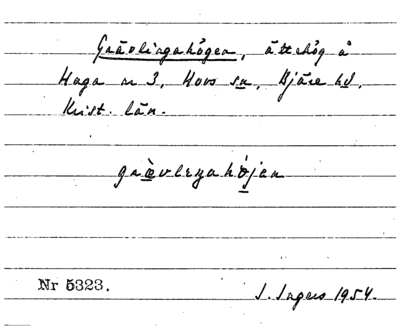 Gnävlingahögen, ättehög å
Haga nr 3, Hovs sn, Bjäre hd,
Krist. län.
gnævleŋahöjen
Nr 5323.
J. Ingers 1954.